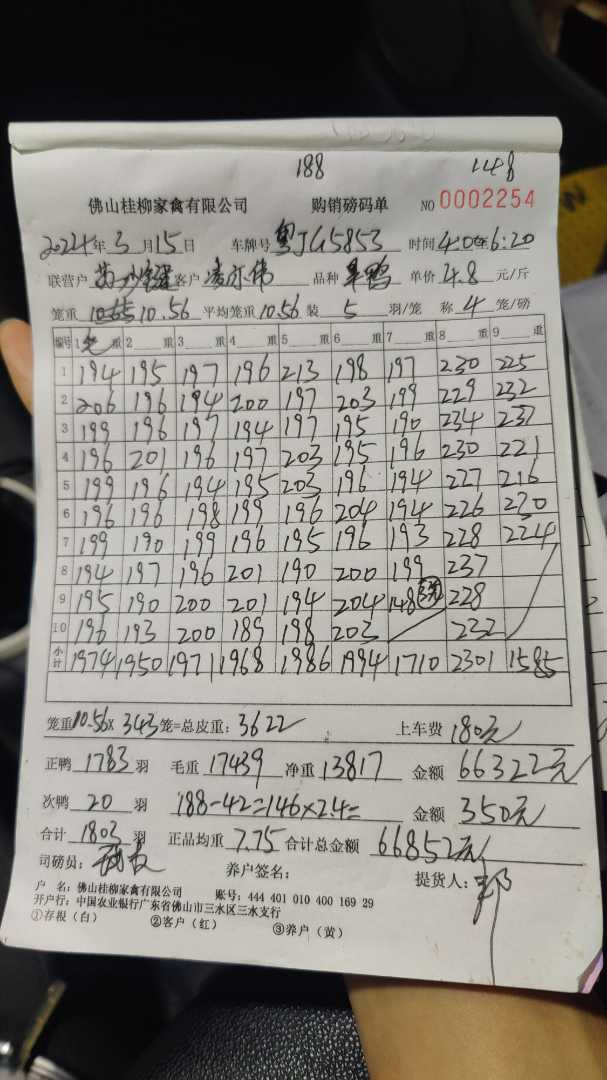 188 148
佛山桂柳家禽有限公司 购销磅码单 NO 0002254
2024年3月15日 车牌号 粤JG5853 时间 4:00至6:20
联营户 客户 麦水伟 品种 单价 4.8 元/斤
笼重 10.56 平均笼重 10.56 装 5 羽/笼 称 4 笼/磅
编号 1 重 2 重 3 重 4 重 5 重 6 重 7 重 8 重 9 重
1 194 195 197 196 213 198 197 230 225
2 206 196 194 200 197 203 199 229 232
3 199 196 197 194 197 195 190 234 237
4 196 201 196 197 203 195 196 230 221
5 199 196 194 195 203 196 194 227 216
6 196 196 198 199 196 204 194 226 230
7 199 190 199 196 195 196 193 228 224
8 194 197 196 201 190 200 199 237
9 195 190 200 201 194 204 148 228
10 196 193 200 189 198 203 232
小计 1974 1950 1971 1968 1986 1994 1710 2301 1585
笼重10.56× 343笼=总皮重: 3622 上车费 180元
正鸭 1783 羽 毛重 17439 净重 13817 金额 66322元
次鸭 20 羽 188-42=146×2.4= 金额 350元
合计 1803 羽 正品均重 7.75 合计总金额 66852元
司磅员: 养户签名: 提货人:
户 名: 佛山桂柳家禽有限公司 账号: 444 401 010 400 169 29
开户行: 中国农业银行广东省佛山市三水区三水支行
①存根(白) ②客户(红) ③养户(黄)